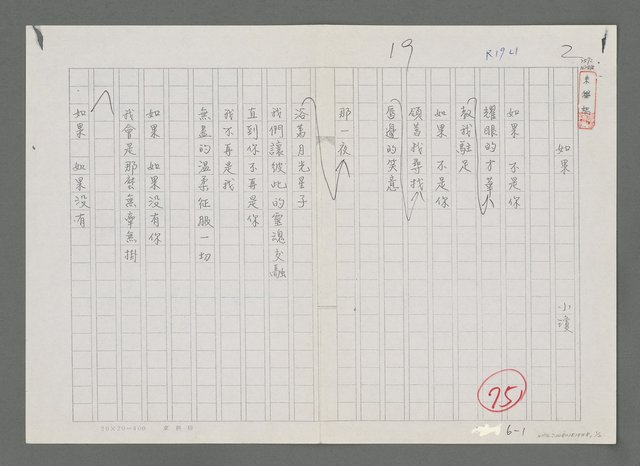 19
R19 21
2
如果
小瓊
如果 不是你
耀眼的才華
教我駐足
如果 不是你
傾慕找尋找
唇邊的笑意
那一夜
浴著月光星子
我們讓彼此的靈魂交融
直到你不再是你
我不再是我
無盡的溫柔征服一切
如果 如果沒有你
我會是那麼無牽無掛
如果 如果沒有
75
6-1
20×20=400